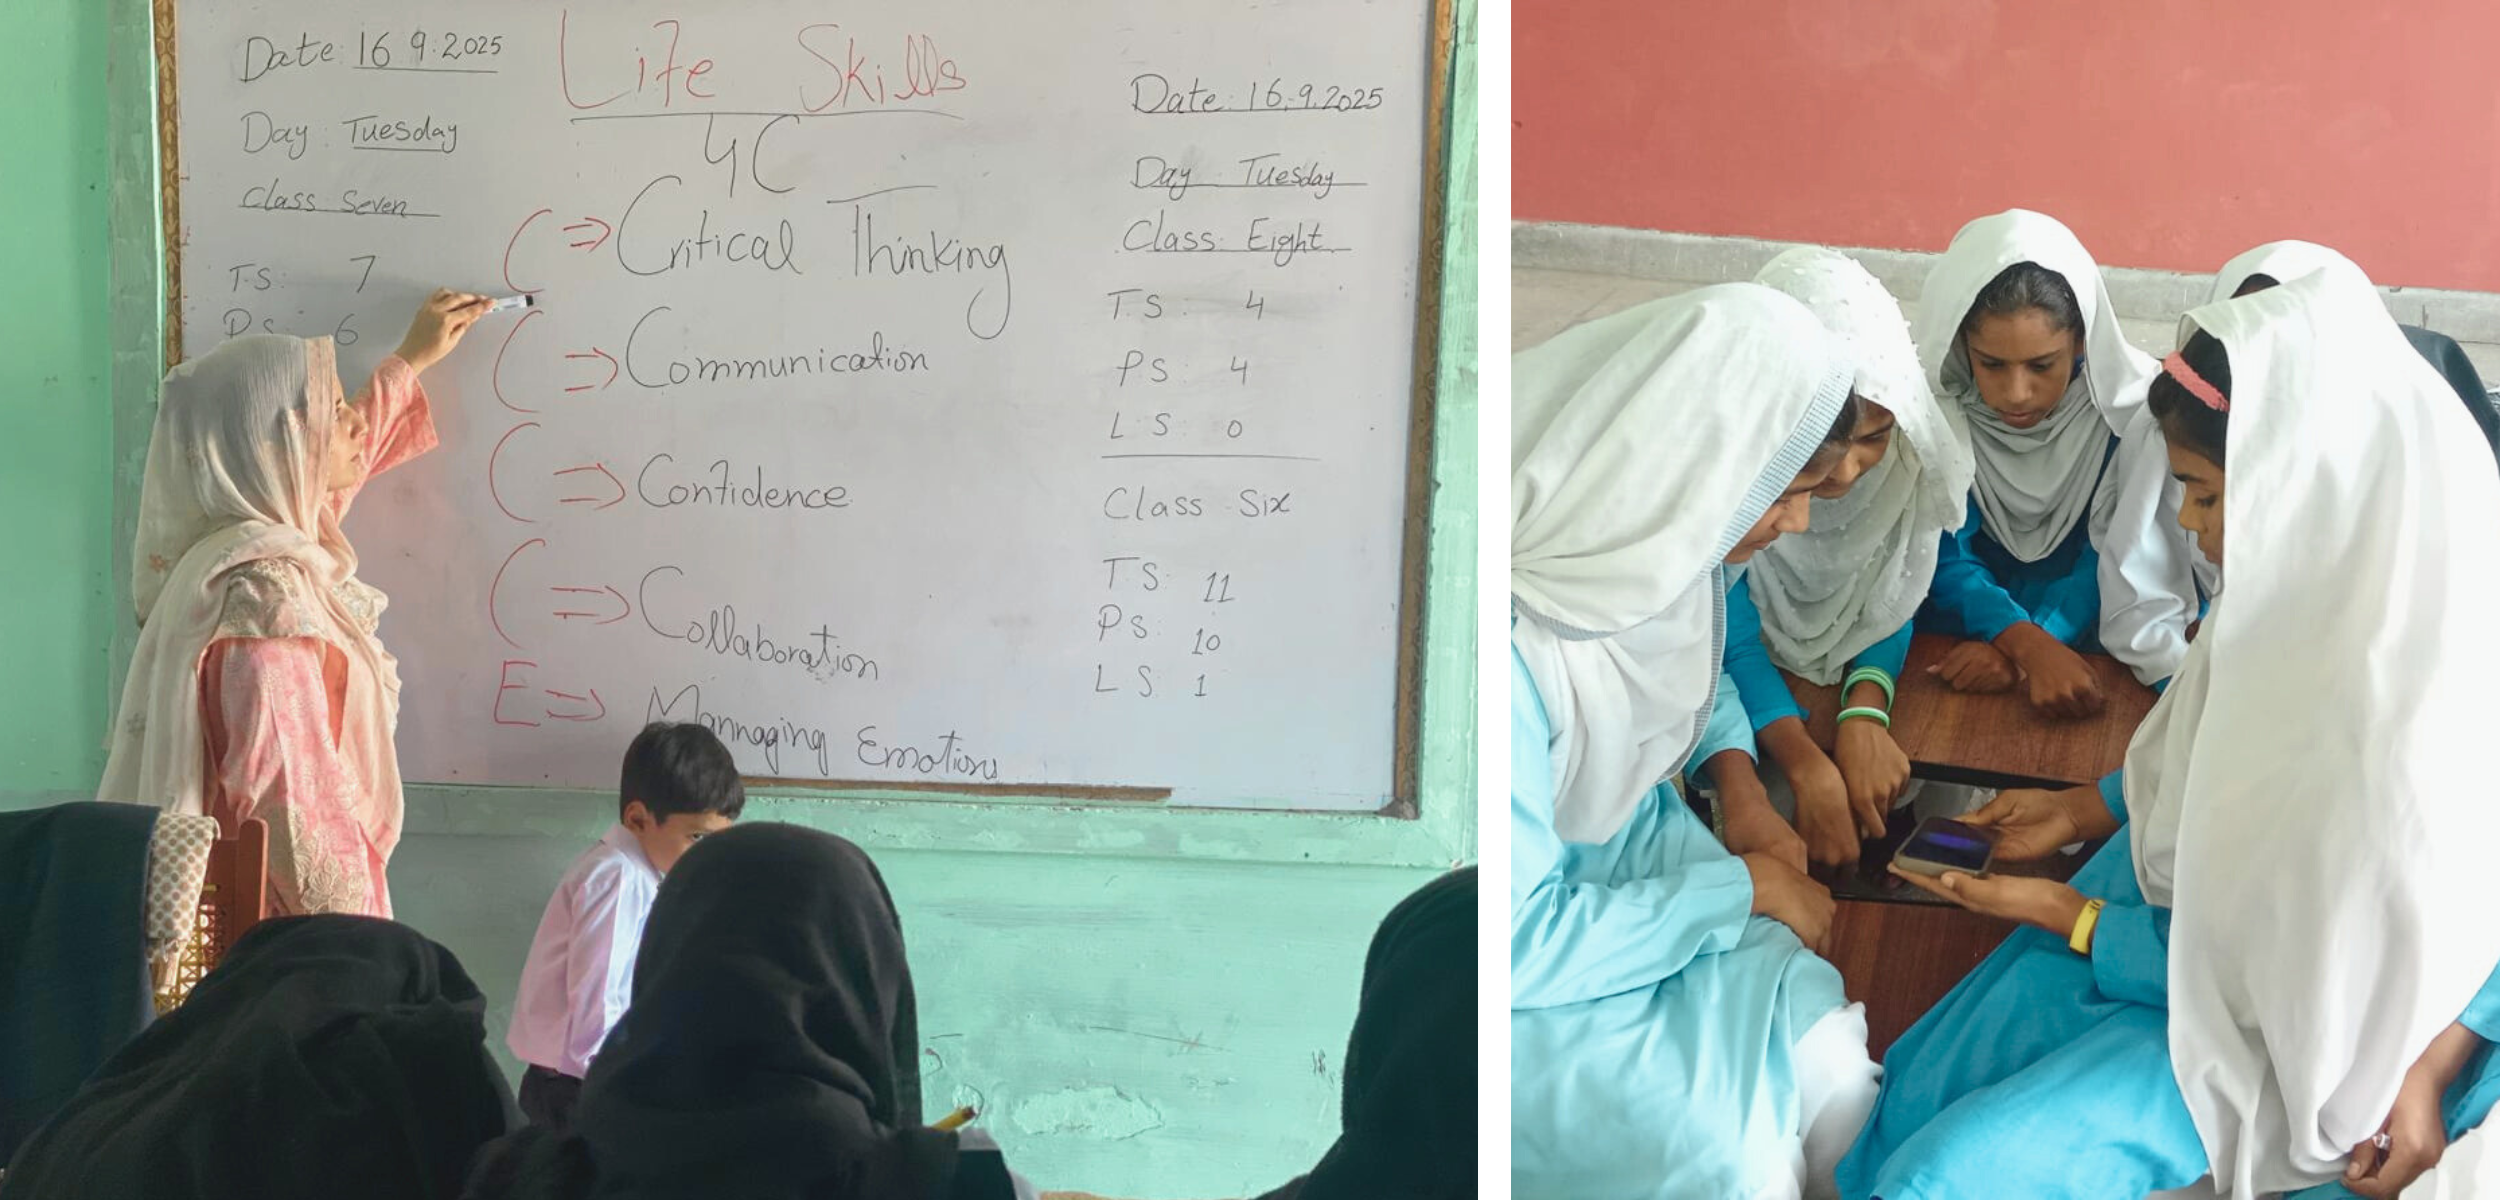 Date: 16 9:2025
Day: Tuesday
Class Seven
T.S: 7
P.S: 6
Life Skills
4C
C ⇒ Critical Thinking
C ⇒ Communication
C ⇒ Confidence
C ⇒ Collaboration
E ⇒ Mannaging Emotions
Date: 16.9.2025
Day: Tuesday
Class: Eight
T S: 4
P S: 4
L S: 0
Class Six
T S: 11
P S: 10
L S: 1